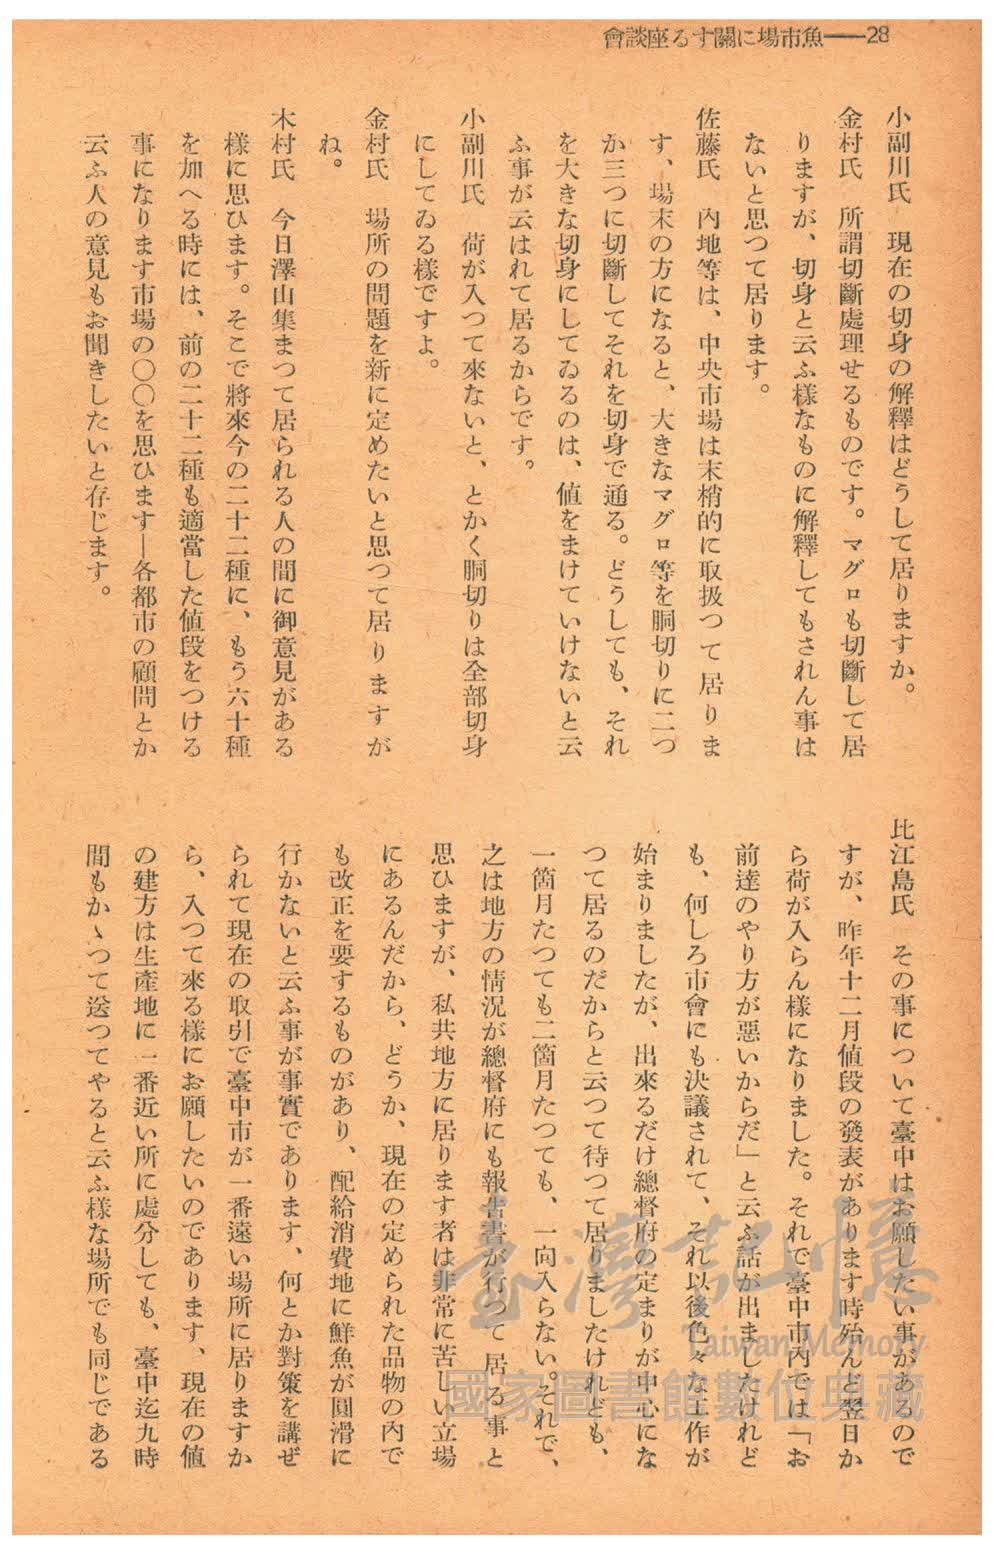 會談座るす關に場市魚——28
小副川氏　現在の切身の解釋はどうして居りますか。
金村氏　所謂切斷處理せるものです。マグロも切斷して居
りますが、切身と云ふ樣なものに解釋してもされん事は
ないと思つて居ります。
佐藤氏　內地等は、中央市場は末梢的に取扱つて居りま
す、場末の方になると、大きなマグロ等を胴切りに二つ
か三つに切斷してそれを切身で通る。どうしても、それ
を大きな切身にしてゐるのは、値をまけていけないと云
ふ事が云はれて居るからです。
小副川氏　荷が入つて來ないと、とかく胴切りは全部切身
にしてゐる樣ですよ。
金村氏　場所の問題を新に定めたいと思つて居りますが
ね。
木村氏　今日澤山集まつて居られる人の間に御意見がある
樣に思ひます。そこで將來今の二十二種に、もう六十種
を加へる時には、前の二十二種も適當した値段をつける
事になります市場の〇〇を思ひます—各都市の顧問とか
云ふ人の意見もお聞きしたいと存じます。
比江島氏　その事について臺中はお願したい事があるので
すが、昨年十二月値段の發表があります時殆んど翌日か
ら荷が入らん樣になりました。それで臺中市內では「お
前達のやり方が惡いからだ」と云ふ話が出ましたけれど
も、何しろ市會にも決議されて、それ以後色々な工作が
始まりましたが、出來るだけ總督府の定まりが中心にな
つて居るのだからと云つて待つて居りましたけれども、
一箇月たつても二箇月たつても、一向入らない。それで、
之は地方の情況が總督府にも報告書が行つて居る事と
思ひますが、私共地方に居ります者は非常に苦しい立場
にあるんだから、どうか、現在の定められた品物の內で
も改正を要するものがあり、配給消費地に鮮魚が圓滑に
行かないと云ふ事が事實であります、何とか對策を講ぜ
られて現在の取引で臺中市が一番遠い場所に居りますか
ら、入つて來る樣にお願したいのであります、現在の値
の建方は生產地に一番近い所に處分しても、臺中迄九時
間もかゝつて送つてやると云ふ樣な場所でも同じである
臺灣記憶
Taiwan Memory
國家圖書館數位典藏